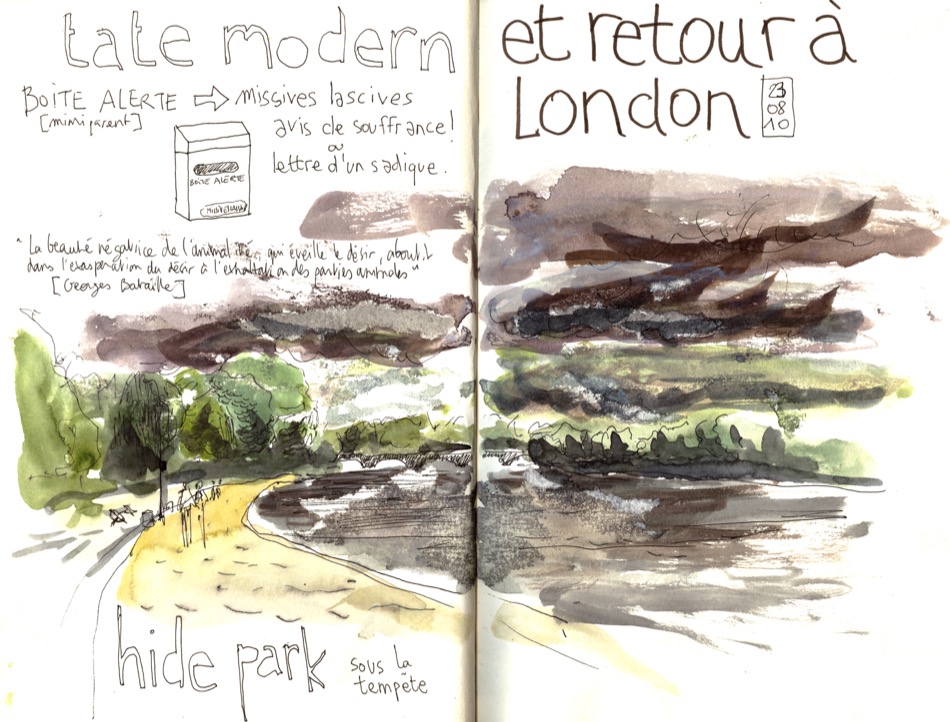 tate modern
BOITE ALERTE ⇨ missives lascives
[mimi parent]
avis de souffrance!
ou
lettre d'un sadique.
BOITE ALERTE
"La beauté négatrice de l'animalité, qui éveille le désir, aboutit
dans l'exaspération du désir à l'exaltation des parties animales"
[Georges Bataille]
hide park
sous la
tempête
et retour à
London
23
08
10